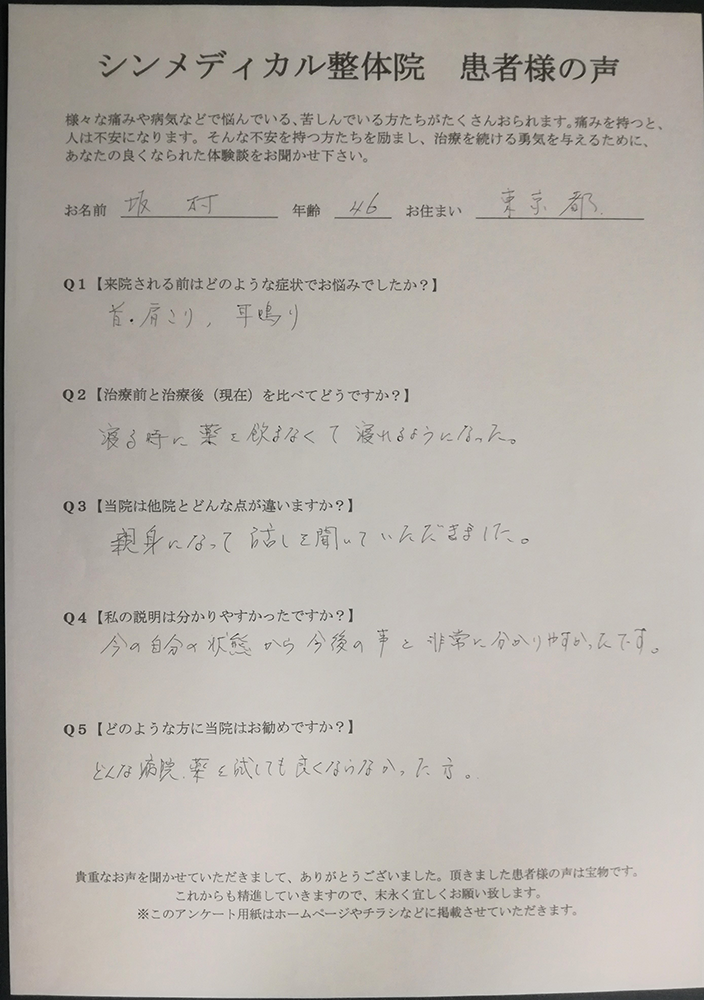 シンメディカル整体院　患者様の声
様々な痛みや病気などで悩んでいる、苦しんでいる方たちがたくさんおられます。痛みを持つと、
人は不安になります。そんな不安を持つ方たちを励まし、治療を続ける勇気を与えるために、
あなたの良くなられた体験談をお聞かせ下さい。
お名前　坂　村　年齢　46　お住まい　東京都
Q1【来院される前はどのような症状でお悩みでしたか？】
首・肩こり，耳鳴り
Q2【治療前と治療後（現在）を比べてどうですか？】
寝る時に薬を飲まなくて寝れるようになった。
Q3【当院は他院とどんな点が違いますか？】
親身になって話しを聞いていただきました。
Q4【私の説明は分かりやすかったですか？】
今の自分の状態から今後の事と非常に分かりやすかったです。
Q5【どのような方に当院はお勧めですか？】
どんな病院、薬を試しても良くならなかった方。
貴重なお声を聞かせていただきまして、ありがとうございました。頂きました患者様の声は宝物です。
これからも精進していきますので、末永く宜しくお願い致します。
※このアンケート用紙はホームページやチラシなどに掲載させていただきます。